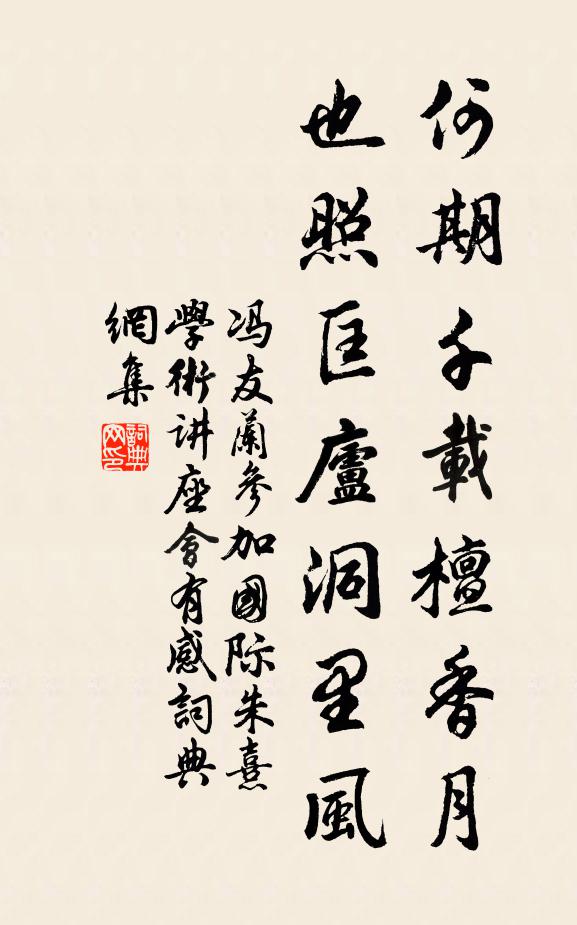 何期千載檀香月
也照匡廬洞里風
冯友蘭參加國际朱熹
學術讲座會有感詞典
網集
詞典
网印